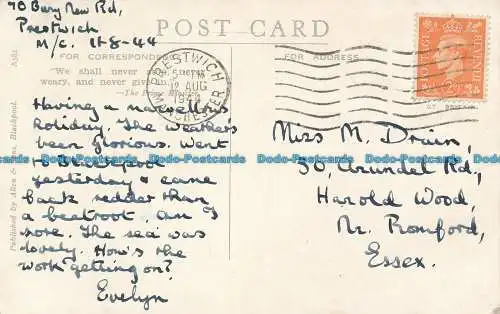 70 Bury New Rd,
Prestwich
M/c. 11-8-44
POST CARD
FOR CORRESPONDENCE
FOR ADDRESS
We shall never
weary, and never give in.
—The Prime Minister
PRESTWICH
MANCHESTER
12 AUG
POSTAGE
Having a marvellous
holiday. The weather's
been glorious. Went
to Blackpool
yesterday & came
back redder than
a beetroot. Am I
sore. The sea was
lovely. How's the
work getting on?
Evelyn
Miss M. Druin,
50, Arundel Rd,
Harold Wood,
Nr. Romford,
Essex.
Published by Allen & Sons, Blackpool.
Dodo-Postcards Dodo-Postcards Dodo-Postcards Dodo-Postcards Dodo-Postcards